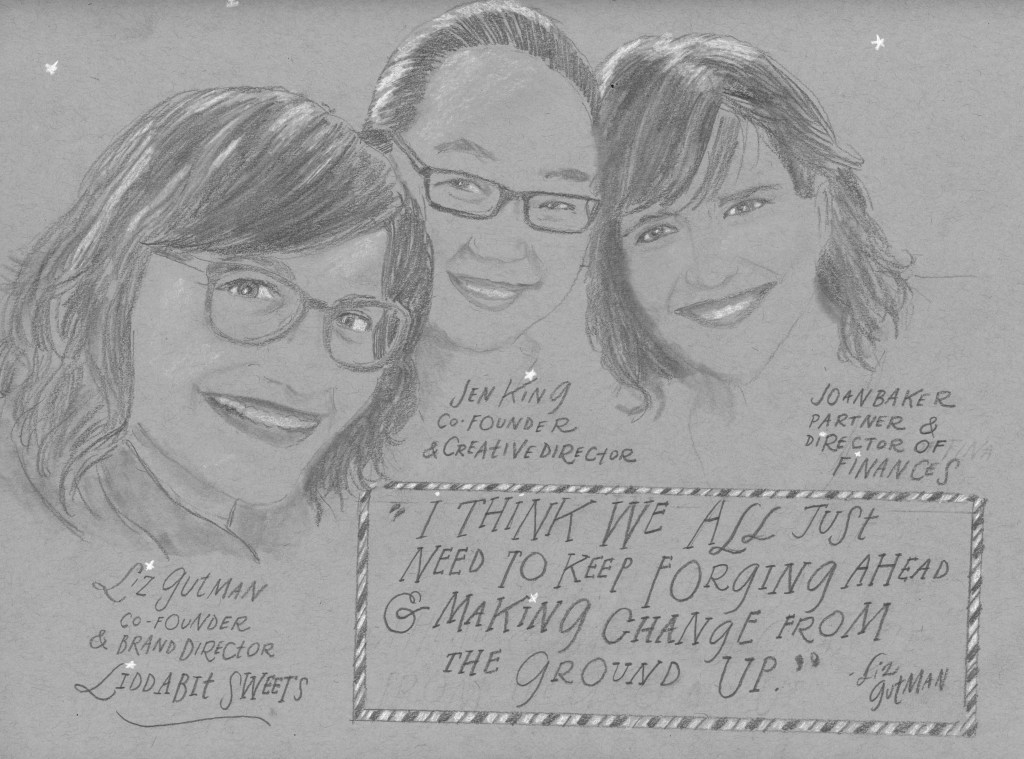 JEN KING
CO-FOUNDER
& CREATIVE DIRECTOR
JOAN BAKER
PARTNER &
DIRECTOR OF
FINANCES
LIZ GUTMAN
CO-FOUNDER
& BRAND DIRECTOR
LIDDABIT SWEETS
"I THINK WE ALL JUST
NEED TO KEEP FORGING AHEAD
& MAKING CHANGE FROM
THE GROUND UP."
- LIZ
GUTMAN